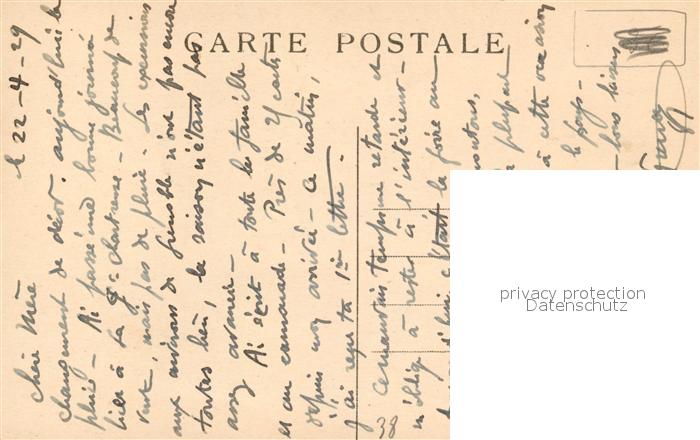 CARTE POSTALE
le 22-4-29
Chère Mère
changement de décor. aujourd'hui la
pluie - Ai passé une bonne journée
hier à la Gde Chartreuse - Beaucoup de
vent, mais pas de pluie. Les excursions
aux environs de Grenoble n'ont pas encore
toutes lieu, la saison n'étant pas
assez avancée -
Ai écrit à toute la famille
et au camarade - Près de 25 cartes
depuis mon arrivée - Ce matin,
j'ai reçu ta 1re lettre.
Ce mauvais temps me retarde et
m'oblige à rester à l'intérieur -
la foire au
à cette occasion
le pays -
38
privacy protection
Datenschutz